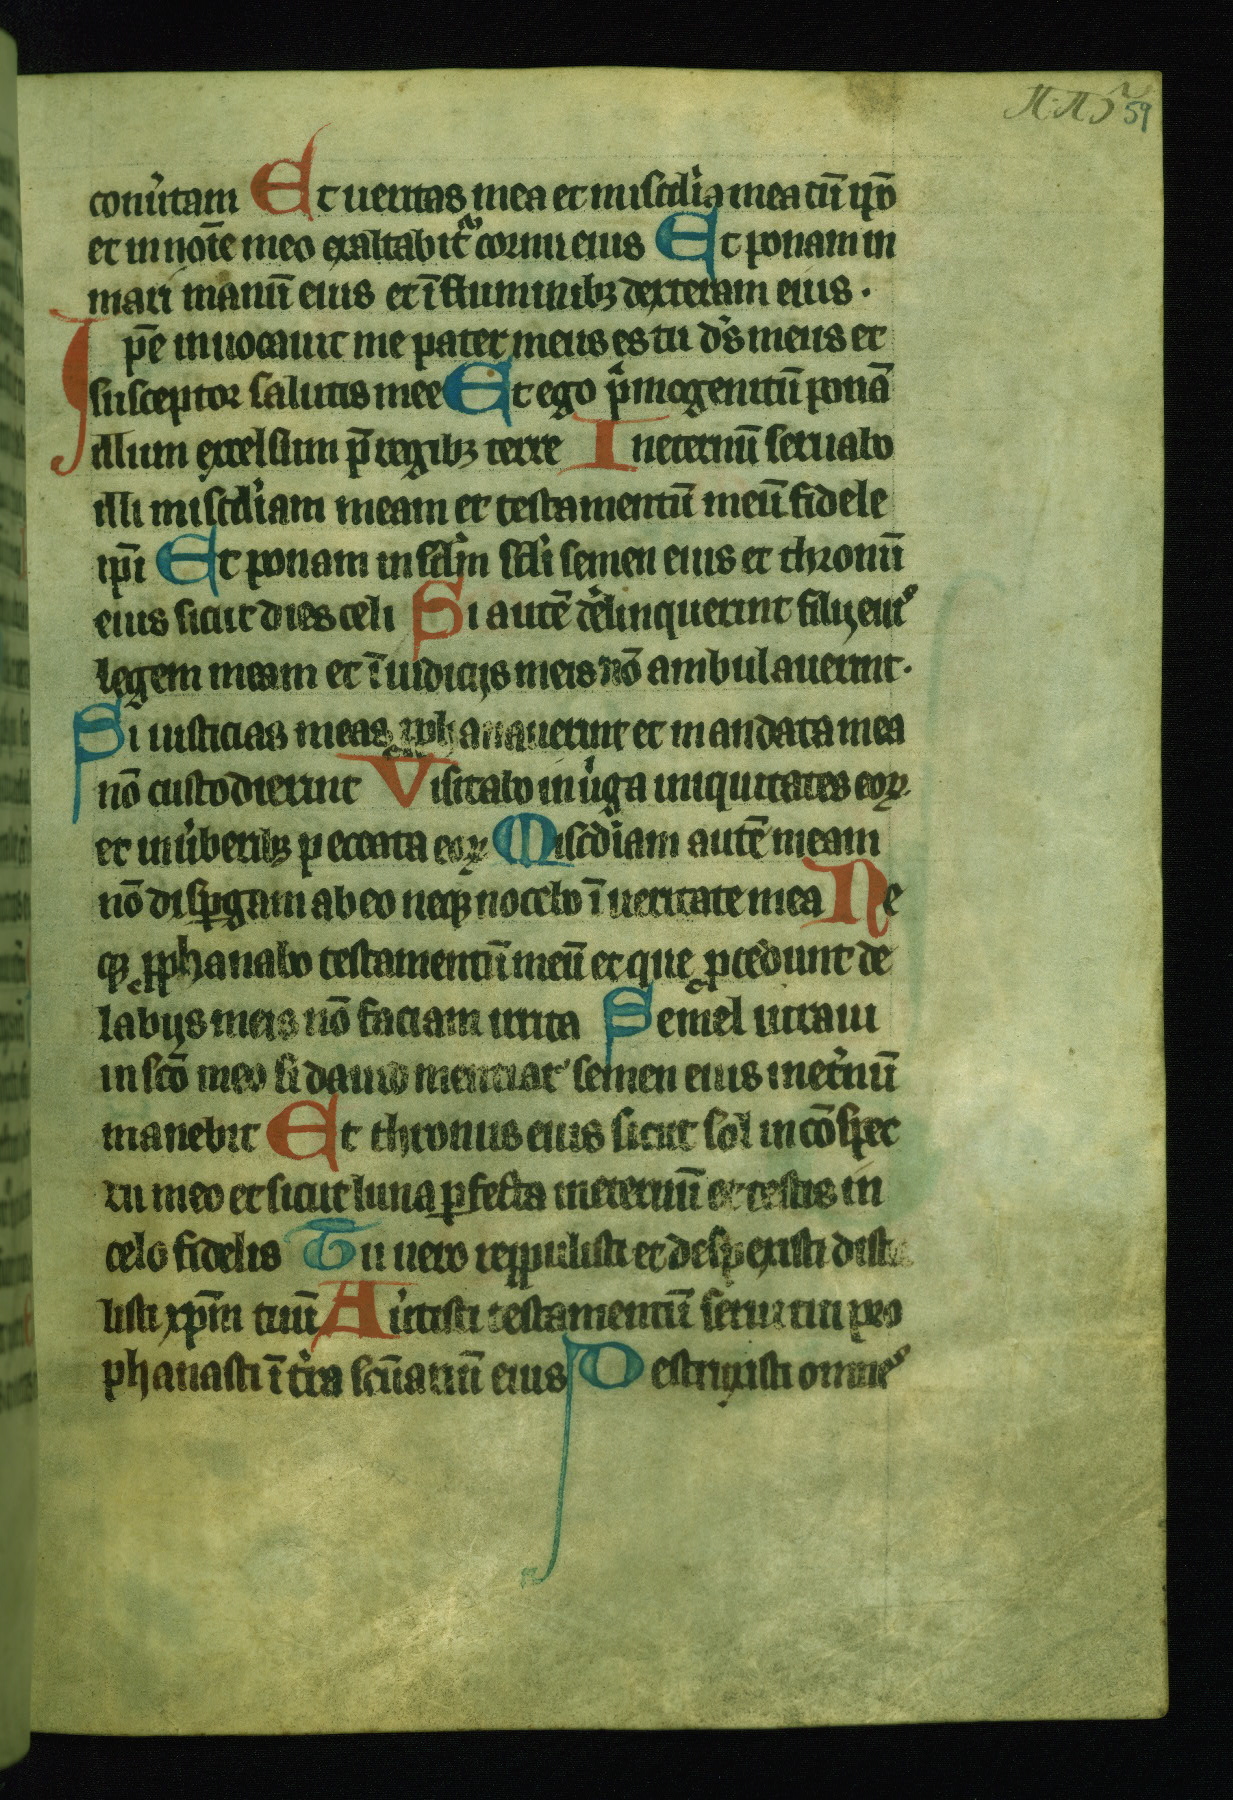 59
conu̓tam Et ueritas mea et misc̄dia mea cū ip̄o
et in noīe meo exaltabit᷑ cornu eius Et ponam in
mari manū eius et ī fluminibꝫ dexteram eius .
Ipē inuocauit me pater meus es tu ds̄ meus et
susceptor salutis mee Et ego pͥmogenitū ponā
illum excelsum p̄ regibꝫ terre In eternū seruabo
illi misc̄diam meam et testamentū meū fidele
ip̄i Et ponam in sc̄lm sc̄li semen eius et thronū
eius sicut dies celi Si autē d̓elinquerint filij eiꝰ
legem meam et ī iudicijs meis nō ambulauerint .
Si iusticias meas ꝓphanauerint et mandata mea
nō custodierint Visitabo in u̓ga iniquitates eoꝝ
et in u̓beribꝫ peccata eoꝝ Misc̄diam autē meam
nō disꝑgam ab eo neqꝫ nocebo ī ueritate mea Ne
qꝫ ꝓphanabo testamentū meū et que ꝓcedunt de
labijs meis nō faciam irrita Semel iuraui
in sc̄o meo si dauid mentiar semen eius inet̓nū
manebit Et thronus eius sicut sol in cōspec
tu meo et sicut luna ꝑfecta ineternū et testis in
celo fidelis Tu uero reppulisti et despexisti distu
listi xp̄m tuū Au̓tisti testamentū serui tui pro
phanasti ī tr̓a sc̄uariū eius Destruxisti omneˢ